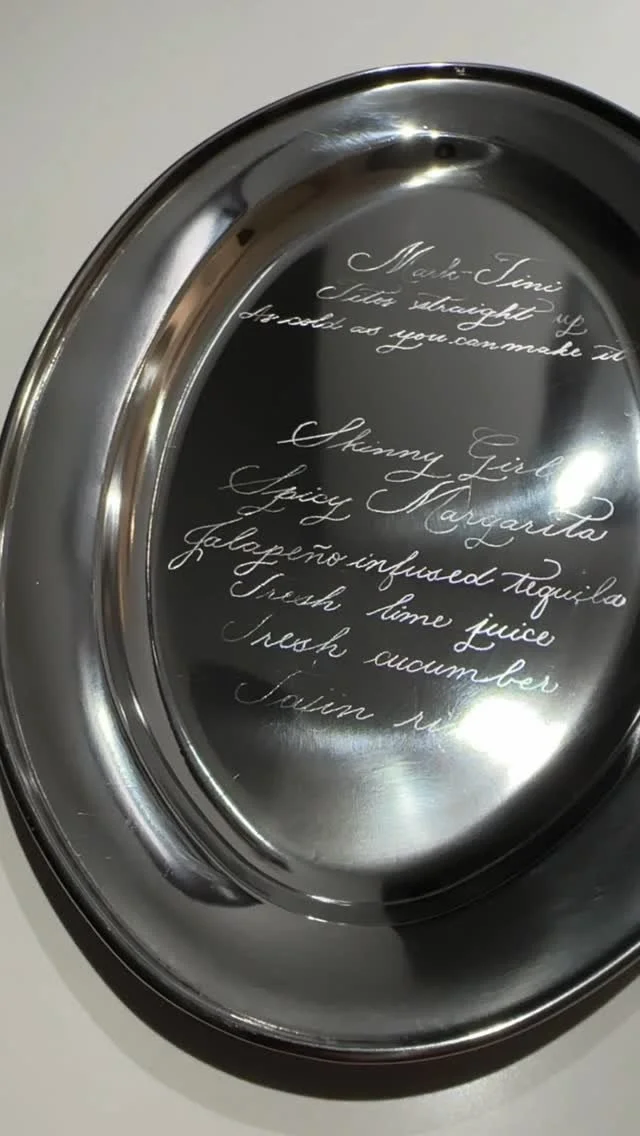 Mark-Tini
Titos straight up
As cold as you can make it
Skinny Girl
Spicy Margarita
Jalapeño infused tequila
Fresh lime juice
Fresh cucumber
Tajin